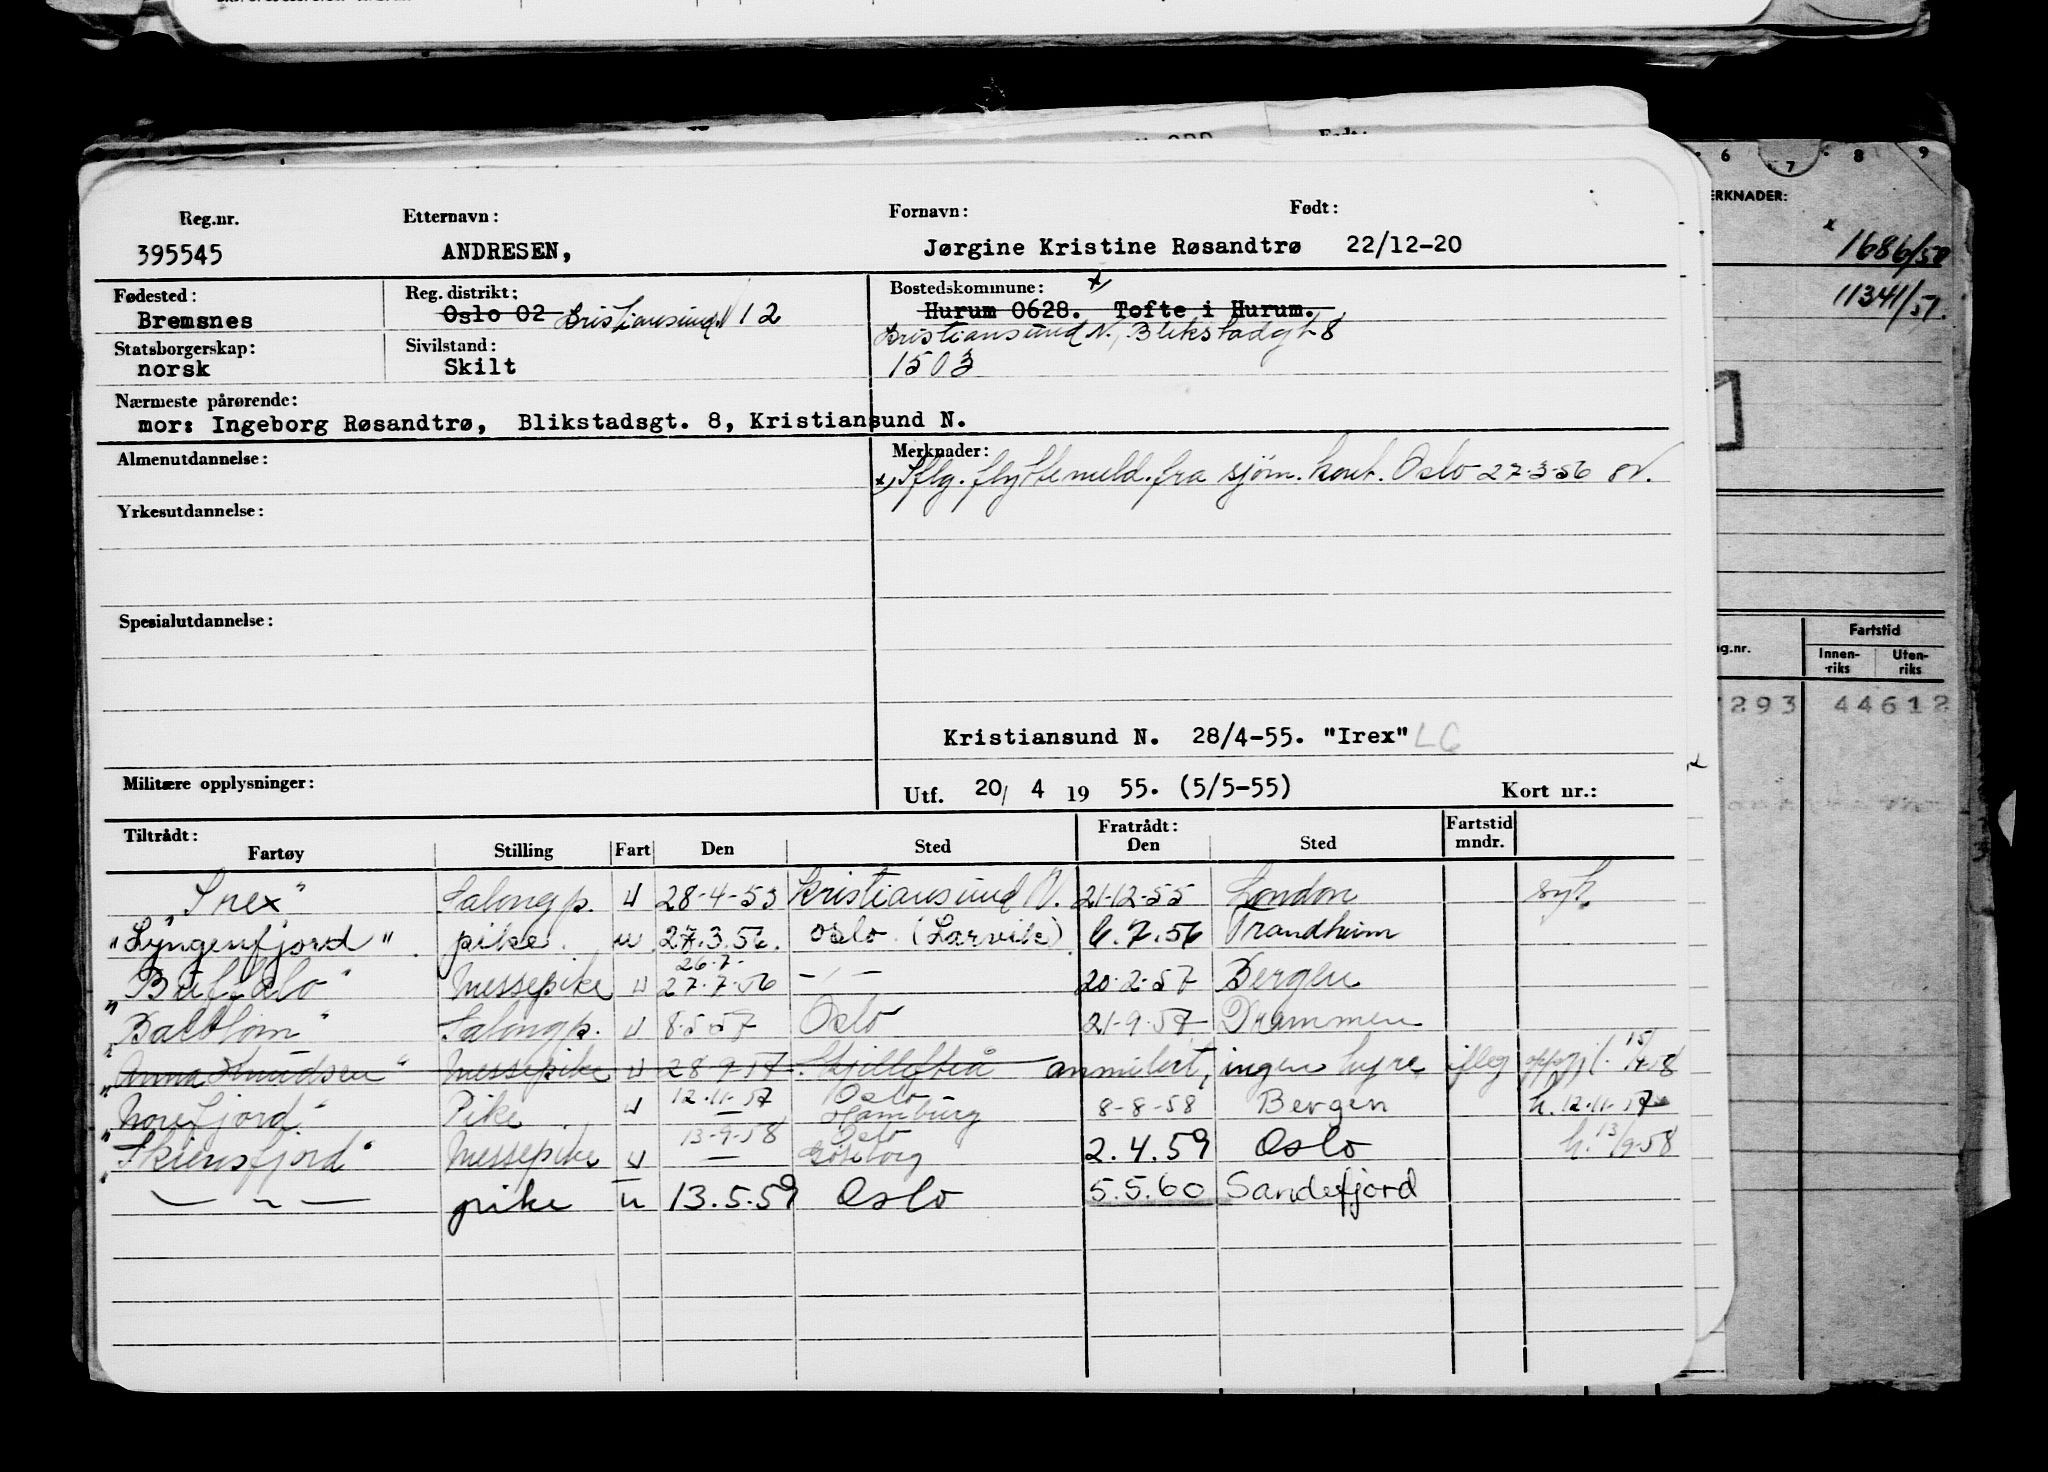 Reg.nr. Etternavn: Fornavn: Født:
395545 ANDRESEN, Jørgine Kristine Røsandtrø 22/12-20
Fødested: Reg. distrikt: Bostedskommune: x/
Bremsnes Oslo 02 Kristiansund N 12 Hurum 0628. Tofte i Hurum.
Kristiansund N., Blikstadgt 8
Statsborgerskap: Sivilstand:
norsk Skilt 1503
Nærmeste pårørende:
mor: Ingeborg Røsandtrø, Blikstadsgt. 8, Kristiansund N.
Almenutdannelse: Merknader:
x/ Iflg. flyttemeld. fra sjøm. kont. Oslo 27-3-56
Yrkesutdannelse:
Spesialutdannelse:
Kristiansund N. 28/4-55. "Irex" LG
Militære opplysninger: Utf. 20/ 4 19 55. (5/5-55) Kort nr.:
Tiltrådt: Fratrådt: Fartstid
Fartøy Stilling Fart Den Sted Den Sted mndr.
"Irex" Salongp. U 28-4-53 Kristiansund N. 21-12-55 London syk
"Lyngenfjord" pike. u 27.3.56. Oslo (Larvik) 6.7.56 Trondheim
26.7-
"Buffalo" Messepike U 27.7.56 -"- 20-2-57 Bergen
"Dalblom" Salongp. U 8-5-57 Oslo 21-9-57 Drammen
"Anna Knudsen" Messepike U 28-9-57 Skjellefteå annulert, ingen hyre ifleg 15/
12.11.57 Oslo
"Norefjord" Pike U — Hamburg 8-8-58 Bergen h. 12-11-57
13-9-58 Oslo
"Skiensfjord" Messepike U — Göteborg 2.4.59 Oslo h. 13/9-58
— " — pike u 13.5.59 Oslo 5.5.60 Sandefjord
6 7 8 9
ERKNADER:
x 1686/58
11341/57.
Fartstid
g.nr. Innen-riks Uten-riks
293 44612